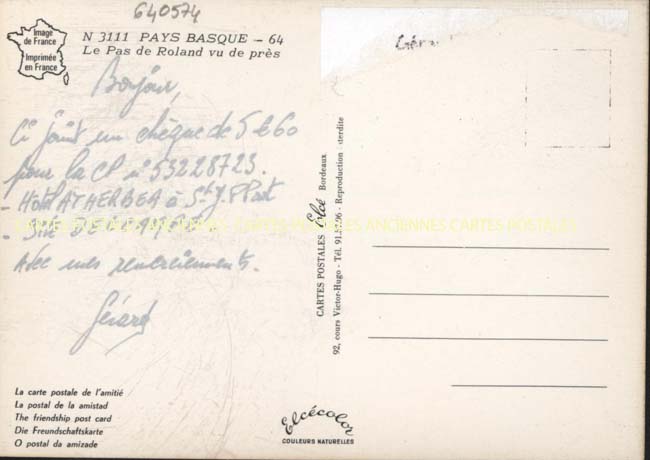 640574
Image
de France
Imprimée
en France
N 3111 PAYS BASQUE - 64
Le Pas de Roland vu de près
Bonjour,
Ci joint un chèque de 5€60
pour la CP n° 53228723.
- Hôtel ATHERBEA à St J. P Port
- 
Avec mes remerciements.
Gérard
CARTES POSTALES ANCIENNES CARTES POSTALES ANCIENNES CARTES POSTALES
CARTES POSTALES Elcé Bordeaux
92, cours Victor-Hugo - Tél. 91. - Reproduction
La carte postale de l'amitié
La postal de la amistad
The friendship post card
Die Freundschaftskarte
O postal da amizade
Elcécolor
COULEURS NATURELLES